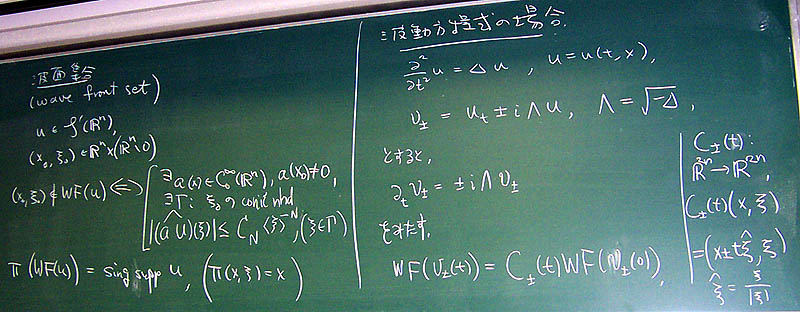 波面集合
(wave front set)
u ∈ 𝒮'(ℝⁿ),
(x₀, ξ₀) ∈ ℝⁿ×(ℝⁿ\0)
(x₀, ξ₀) ∉ WF(u) ⟺
∃a(x) ∈ C₀^∞(ℝⁿ), a(x₀)≠0,
∃Γ: ξ₀ の conic nbd
|(âu)(ξ)| ≤ C_N ⟨ξ⟩^{-N}, (ξ∈Γ)
π(WF(u)) = sing supp u, (π(x,ξ)=x)
波動方程式の場合.
∂²/∂t² u = Δu , u = u(t,x),
v± = u_t ± iΛu, Λ = √-Δ ,
とすると,
∂_t v± = ±iΛv±
をみたす.
WF(v±(t)) = C±(t)WF(v±(0)),
C±(t):
ℝ²ⁿ→ℝ²ⁿ,
C±(t)(x,ξ)
=(x±tξ̂,ξ)
ξ̂ = ξ/|ξ|